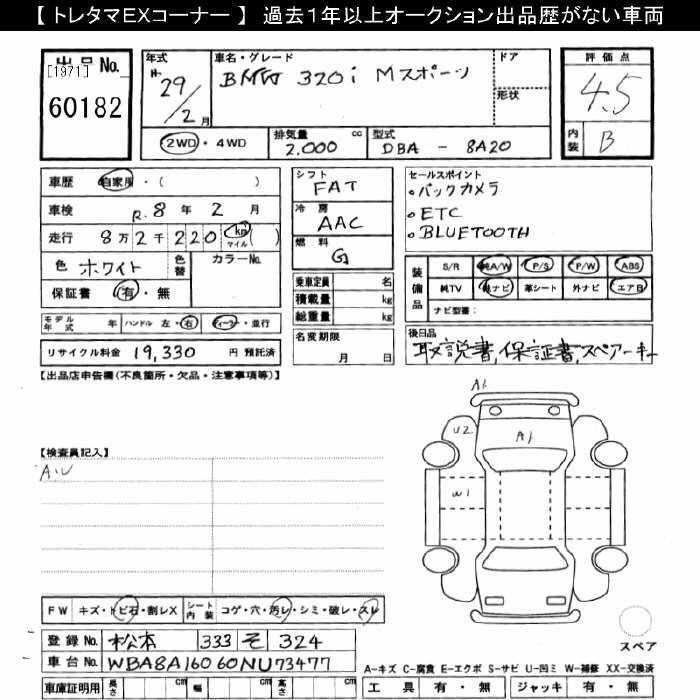 【 トレタマEXコーナー 】 過去1年以上オークション出品歴がない車両
出品No.
[1971]
60182
年式
H-29/2月
車名・グレード
BMW 320i Mスポーツ
ドア
形状
評価点
4.5
内装 B
2WD・4WD
排気量 cc
2.000
型式
DBA - 8A20
車歴 自家用・( )
車検 R.8年 2月
走行 8万2千220 km マイル ( )
色 ホワイト 色替 カラーNo.
保証書 有・無
シフト
FAT
冷房
AAC
燃料
G
乗車定員 名
積載量 kg
総重量 kg
セールスポイント
・バックカメラ
・ETC
・BLUETOOTH
装備品
S/R 純A/W P/S P/W ABS
純TV 純ナビ 革シート 外ナビ エアB
ナビ型番:
モデル年式 年 ハンドル 左・右 ディーラー・並行
リサイクル料金 19,330 円 預託済
名変期限
月 日
後日品
取説書,保証書,スペアーキー
【出品店申告欄(不良箇所・欠品・注意事項等)】
【検査員記入】
A.U
A1
U2
A1
W1
スペア
FW キズ・トビ石・割レX シート内装 コゲ・穴・汚レ・シミ・破レ・スレ
登録No. 松本 333 そ 324
車台No. WBA8A16060NU73477
車庫証明用 長さ cm 幅 cm 高さ cm
A-キズ C-腐食 E-エクボ S-サビ U-凹ミ W-補修 XX-交換済
工具 有・無 ジャッキ 有・無